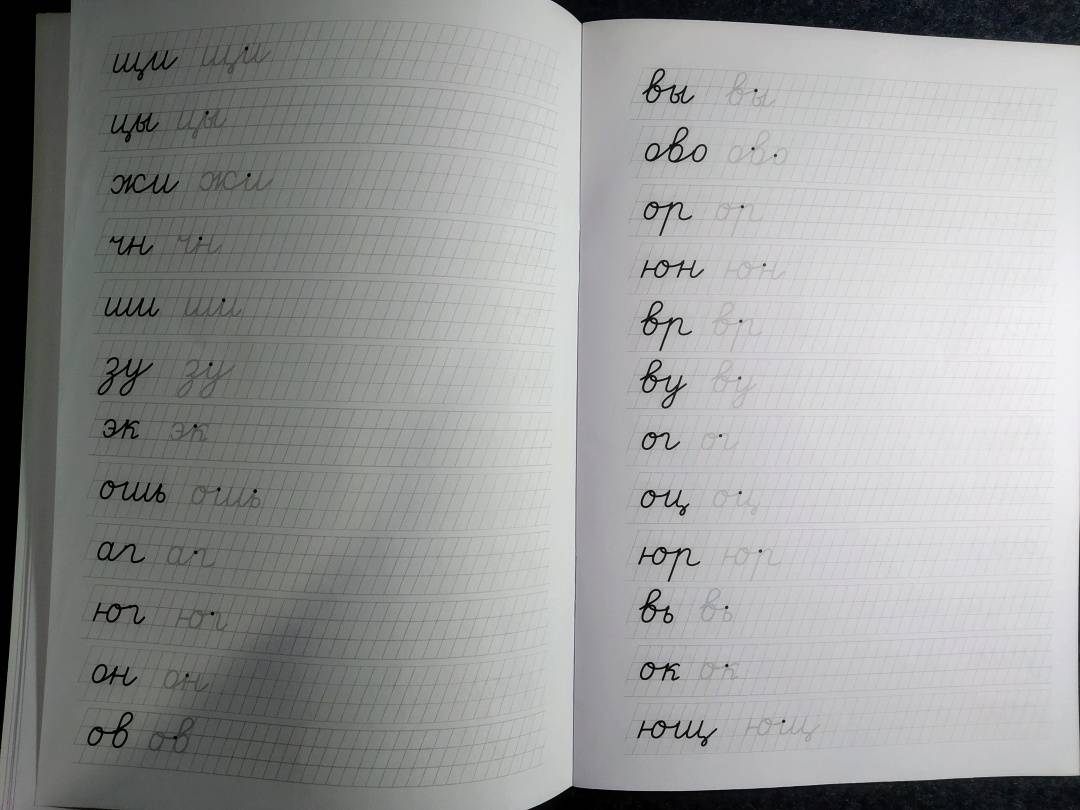 щи щи
цы цы
жи жи
чн чн
ши ши
зу зу
эк эк
ошь ошь
аг аг
юг юг
он он
ов ов
вы вы
ово ово
ор ор
юн юн
вр вр
ву ву
ог ог
оц оц
юр юр
вь вь
ок ок
ющ ющ